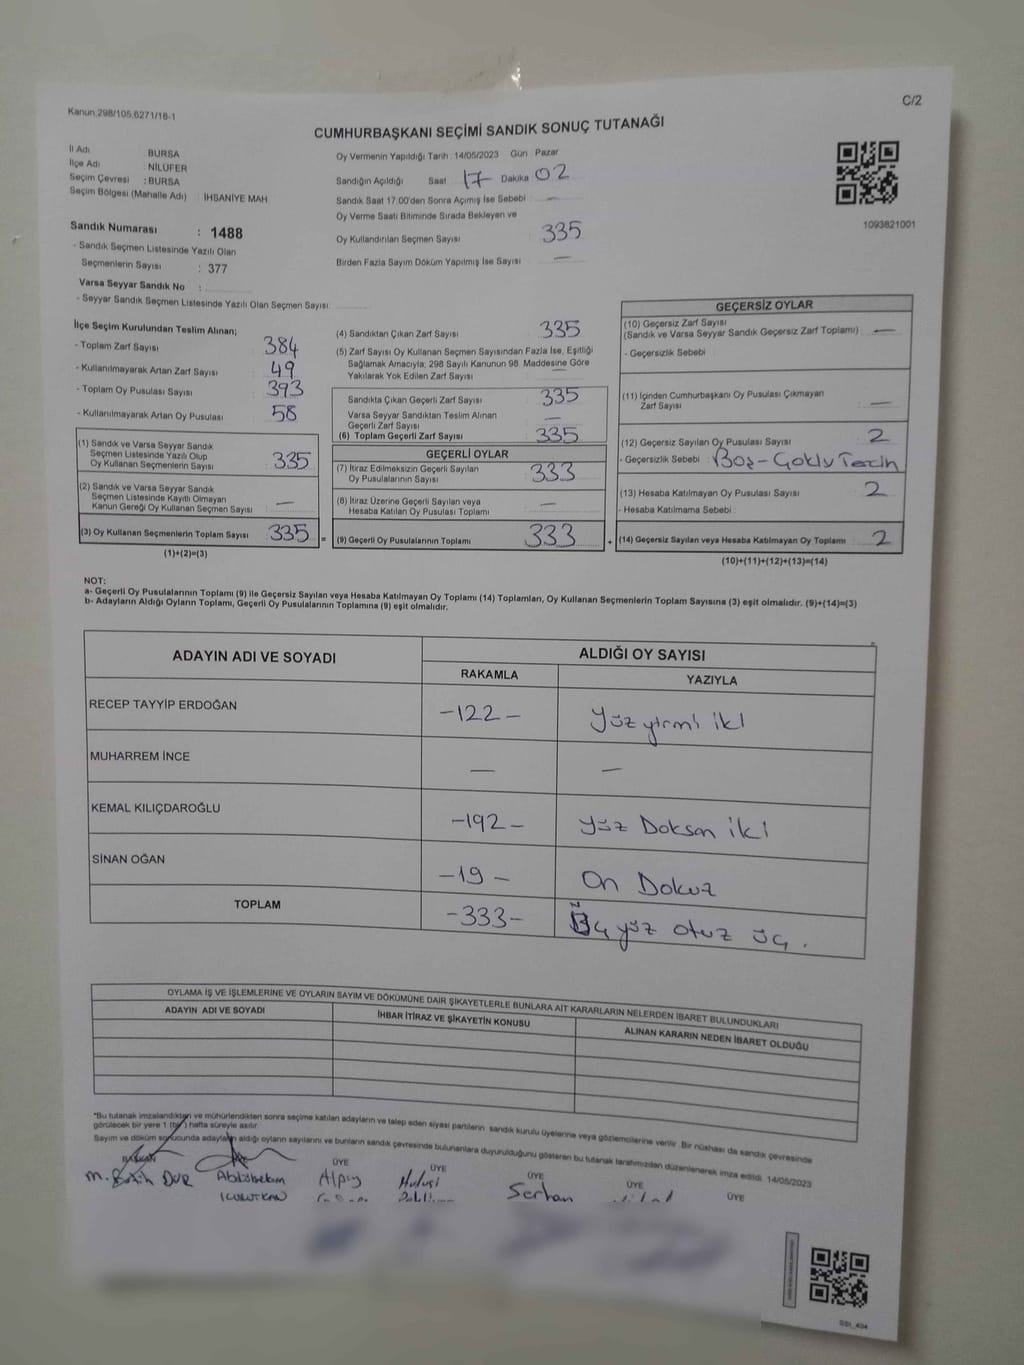 Kanun.298/105.6271/16-1
C/2
CUMHURBAŞKANI SEÇİMİ SANDIK SONUÇ TUTANAĞI
İl Adı BURSA
İlçe Adı : NİLÜFER
Seçim Çevresi : BURSA
Seçim Bölgesi (Mahalle Adı) : İHSANİYE MAH
Sandık Numarası : 1488
- Sandık Seçmen Listesinde Yazılı Olan
Seçmenlerin Sayısı : 377
Varsa Seyyar Sandık No :
- Seyyar Sandık Seçmen Listesinde Yazılı Olan Seçmen Sayısı:
Oy Vermenin Yapıldığı Tarih : 14/05/2023 Gün Pazar
Sandığın Açıldığı Saat 17 Dakika 02
Sandık Saat 17.00'den Sonra Açımış İse Sebebi —
Oy Verme Saati Bitiminde Sırada Bekleyen ve
Oy Kullandırılan Seçmen Sayısı 335
Birden Fazla Sayım Döküm Yapılmış İse Sayısı —
1093821001
İlçe Seçim Kurulundan Teslim Alınan;
- Toplam Zarf Sayısı 384
- Kullanılmayarak Artan Zarf Sayısı 49
- Toplam Oy Pusulası Sayısı 393
- Kullanılmayarak Artan Oy Pusulası 58
(1) Sandık ve Varsa Seyyar Sandık
Seçmen Listesinde Yazılı Olup
Oy Kullanan Seçmenlerin Sayısı 335
(2) Sandık ve Varsa Seyyar Sandık
Seçmen Listesinde Kayıtlı Olmayan
Kanun Gereği Oy Kullanan Seçmen Sayısı —
(3) Oy Kullanan Seçmenlerin Toplam Sayısı 335 =
(1)+(2)=(3)
(4) Sandıktan Çıkan Zarf Sayısı 335
(5) Zarf Sayısı Oy Kullanan Seçmen Sayısından Fazla İse, Eşitliği
Sağlamak Amacıyla, 298 Sayılı Kanunun 98. Maddesine Göre
Yakılarak Yok Edilen Zarf Sayısı —
Sandıkta Çıkan Geçerli Zarf Sayısı 335
Varsa Seyyar Sandıktan Teslim Alınan
Geçerli Zarf Sayısı —
(6) Toplam Geçerli Zarf Sayısı 335
GEÇERLİ OYLAR
(7) İtiraz Edilmeksizin Geçerli Sayılan
Oy Pusulalarının Sayısı 333
(8) İtiraz Üzerine Geçerli Sayılan veya
Hesaba Katılan Oy Pusulası Toplamı —
(9) Geçerli Oy Pusulalarının Toplamı 333 +
GEÇERSİZ OYLAR
(10) Geçersiz Zarf Sayısı
(Sandık ve Varsa Seyyar Sandık Geçersiz Zarf Toplamı) —
- Geçersizlik Sebebi
(11) İçinden Cumhurbaşkanı Oy Pusulası Çıkmayan
Zarf Sayısı —
(12) Geçersiz Sayılan Oy Pusulası Sayısı 2
- Geçersizlik Sebebi : Boş-Çoklu Tercih
(13) Hesaba Katılmayan Oy Pusulası Sayısı 2
- Hesaba Katılmama Sebebi :
(14) Geçersiz Sayılan veya Hesaba Katılmayan Oy Toplamı 2
(10)+(11)+(12)+(13)=(14)
NOT:
a- Geçerli Oy Pusulalarının Toplamı (9) ile Geçersiz Sayılan veya Hesaba Katılmayan Oy Toplamı (14) Toplamları, Oy Kullanan Seçmenlerin Toplam Sayısına (3) eşit olmalıdır. (9)+(14)=(3)
b- Adayların Aldığı Oyların Toplamı, Geçerli Oy Pusulalarının Toplamına (9) eşit olmalıdır.
ADAYIN ADI VE SOYADI
ALDIĞI OY SAYISI
RAKAMLA YAZIYLA
RECEP TAYYİP ERDOĞAN -122- Yüz yirmi iki
MUHARREM İNCE — —
KEMAL KILIÇDAROĞLU -192- Yüz Doksan iki
SİNAN OĞAN -19- On Dokuz
TOPLAM -333- Üç yüz otuz üç.
OYLAMA İŞ VE İŞLEMLERİNE VE OYLARIN SAYIM VE DÖKÜMÜNE DAİR ŞİKAYETLERLE BUNLARA AİT KARARLARIN NELERDEN İBARET BULUNDUKLARI
ADAYIN ADI VE SOYADI İHBAR İTİRAZ VE ŞİKAYETİN KONUSU ALINAN KARARIN NEDEN İBARET OLDUĞU
"Bu tutanak imzalandıktan ve mühürlendikten sonra seçime katılan adayların ve talep eden siyasi partilerin sandık kurulu üyelerine veya gözlemcilerine verilir. Bir nüshası da sandık çevresinde
görülecek bir yere 1 (bir) hafta süreyle asılır.
Sayım ve döküm sonucunda adayların aldığı oyların sayılarını ve bunların sandık çevresinde bulunanlara duyurulduğunu gösteren bu tutanak tarafımızdan düzenlenerek imza edildi. 14/05/2023
BAŞKAN ÜYE ÜYE ÜYE ÜYE ÜYE
DUR Alpiş Hulusi Serhan